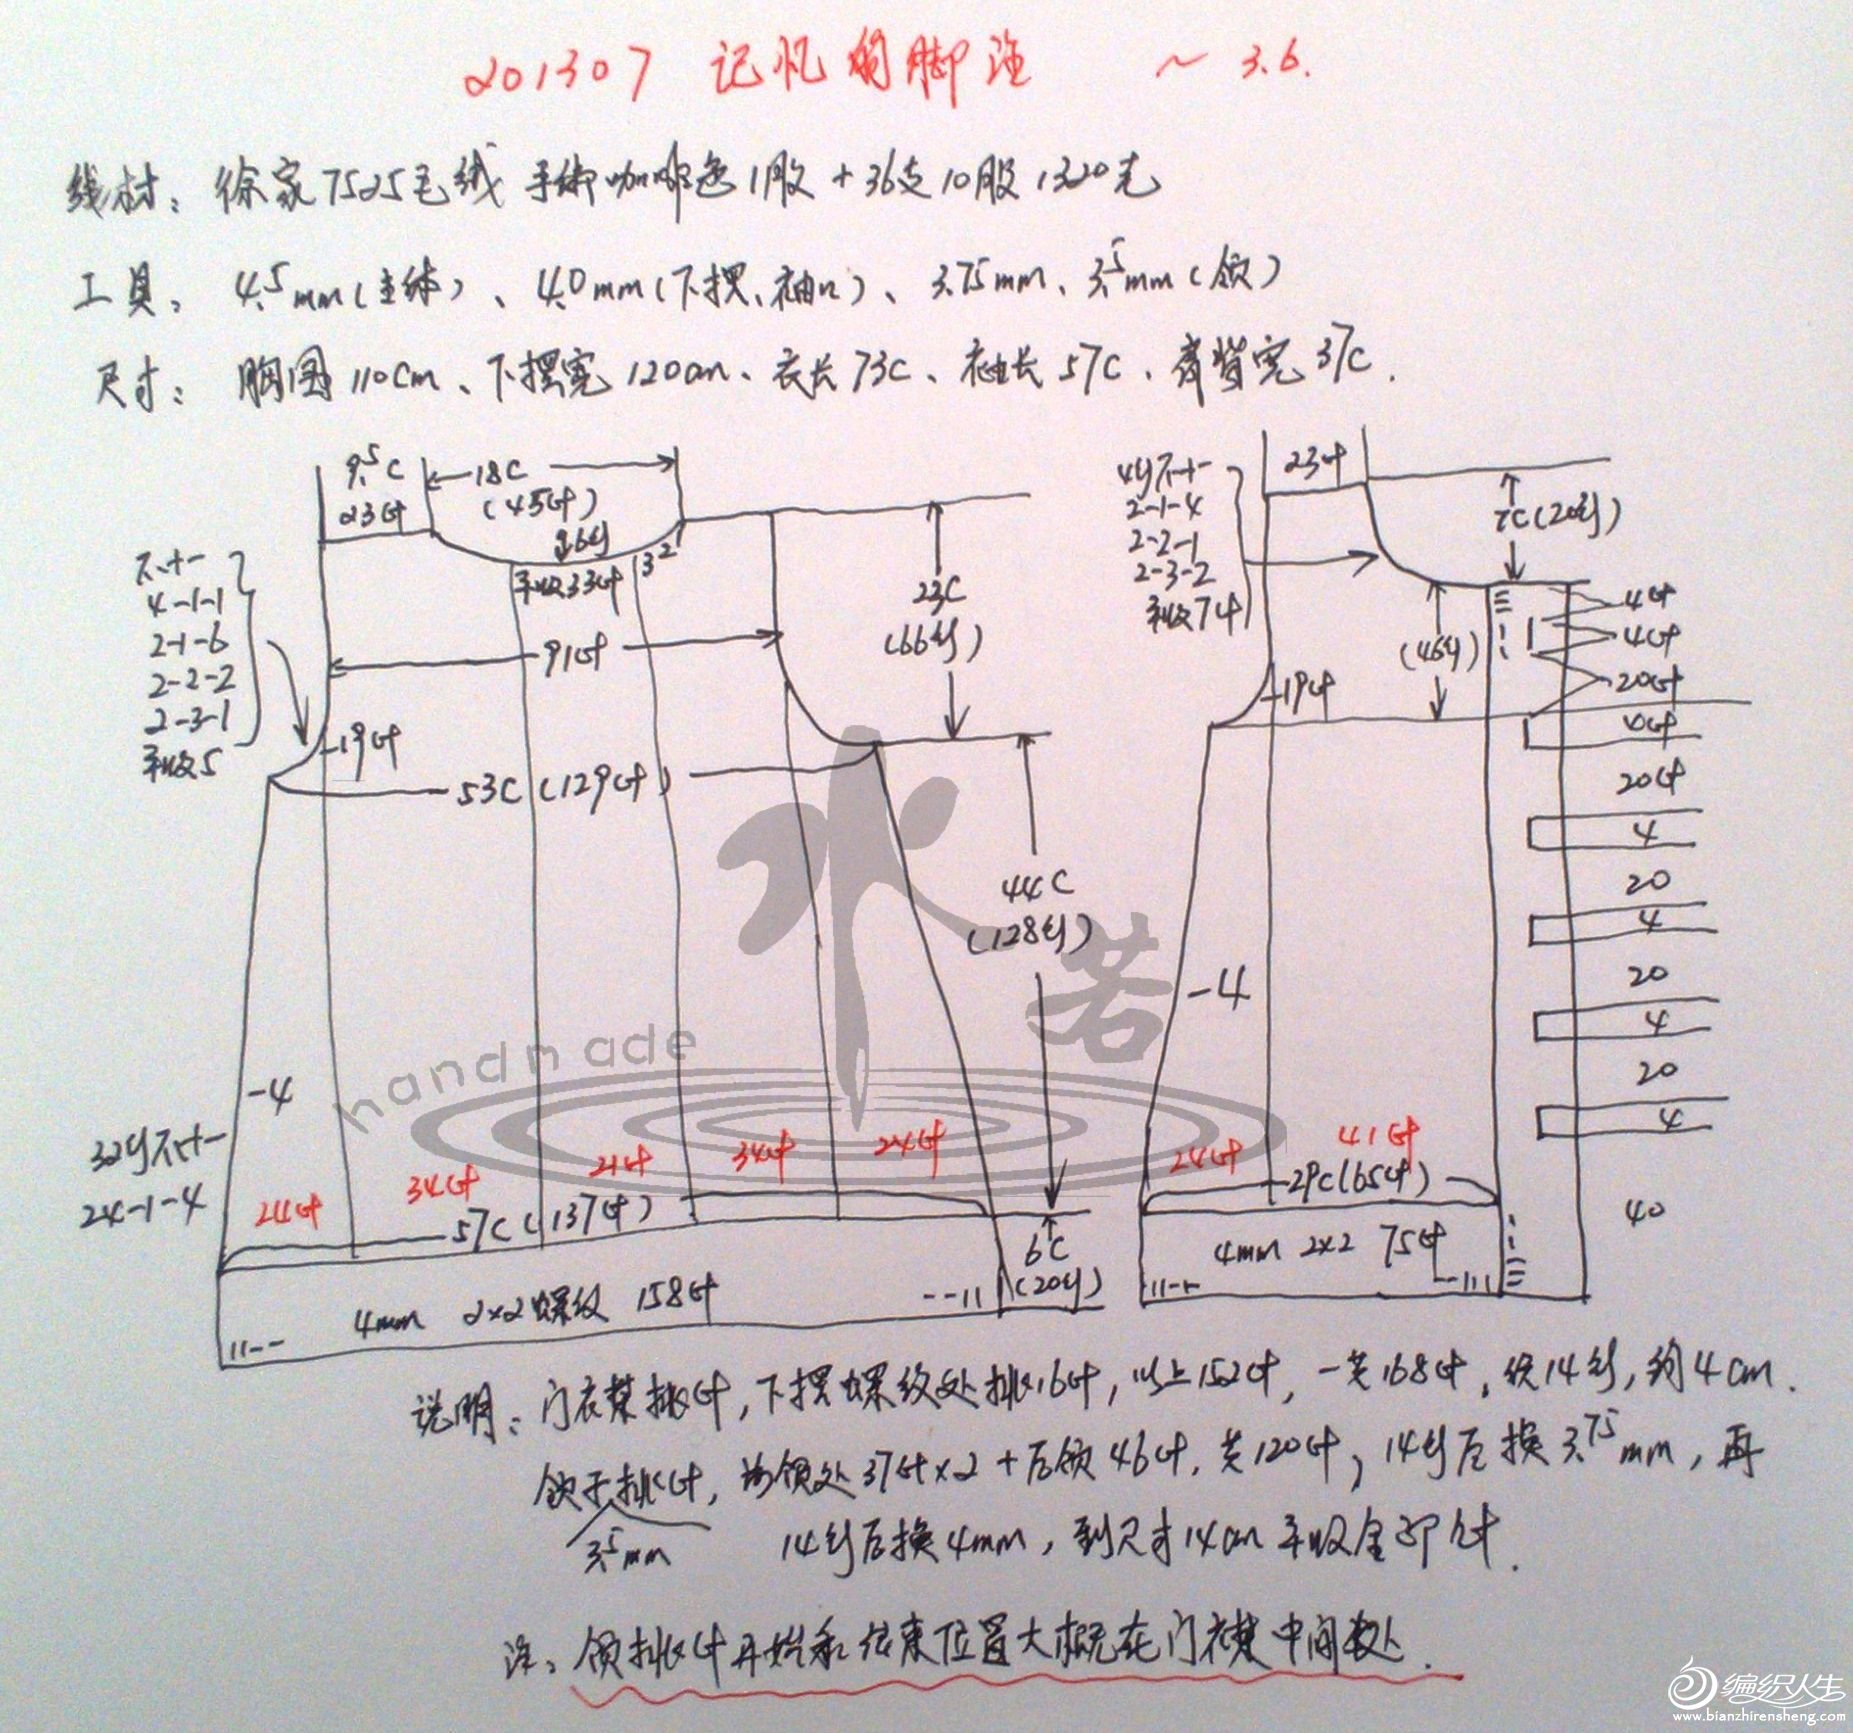 201307 记忆的脚注 ~3.6.
线材：徐家7525毛绒 手術咖啡色1股+36支10股 1320克
工具：4.5mm(主体)、4.0mm(下摆、袖口)、3.75mm、3.5mm(领)
尺寸：胸围110cm、下摆宽120cm、衣长73C、袖长57C、肩背宽37C.
9.5C
23针
18C
(45针)
6行
平收33针
3
2
不+-
4-1-1
2-1-6
2-2-2
2-3-1
平收5
91针
19针
53C(129针)
23C
(66行)
44C
(128行)
-4
32行不+-
24-1-4
24针
34针
21针
34针
24针
57C(137针)
6C
(20行)
4mm 2×2螺纹 158针
4行不+-
2-1-4
2-2-1
2-3-2
平收7针
23针
7C(20行)
(46行)
19针
-4
24针
41针
29C(65针)
4mm 2×2 75针
4针
4针
20针
4针
20针
4
20
4
20
4
20
4
40
说明：门衣襟挑针，下摆螺纹处挑16针，以上152针，一共168针，织14行，约4cm.
领子挑针，前领处37针×2+后领46针，共120针，14行后换3.75mm，再
3.5mm
14行后换4mm，到尺寸14cm平收全部针.
注：领挑针开始和结束位置大概在门衣襟中间处.
水若
handmade
编织人生
www.bianzhirensheng.com